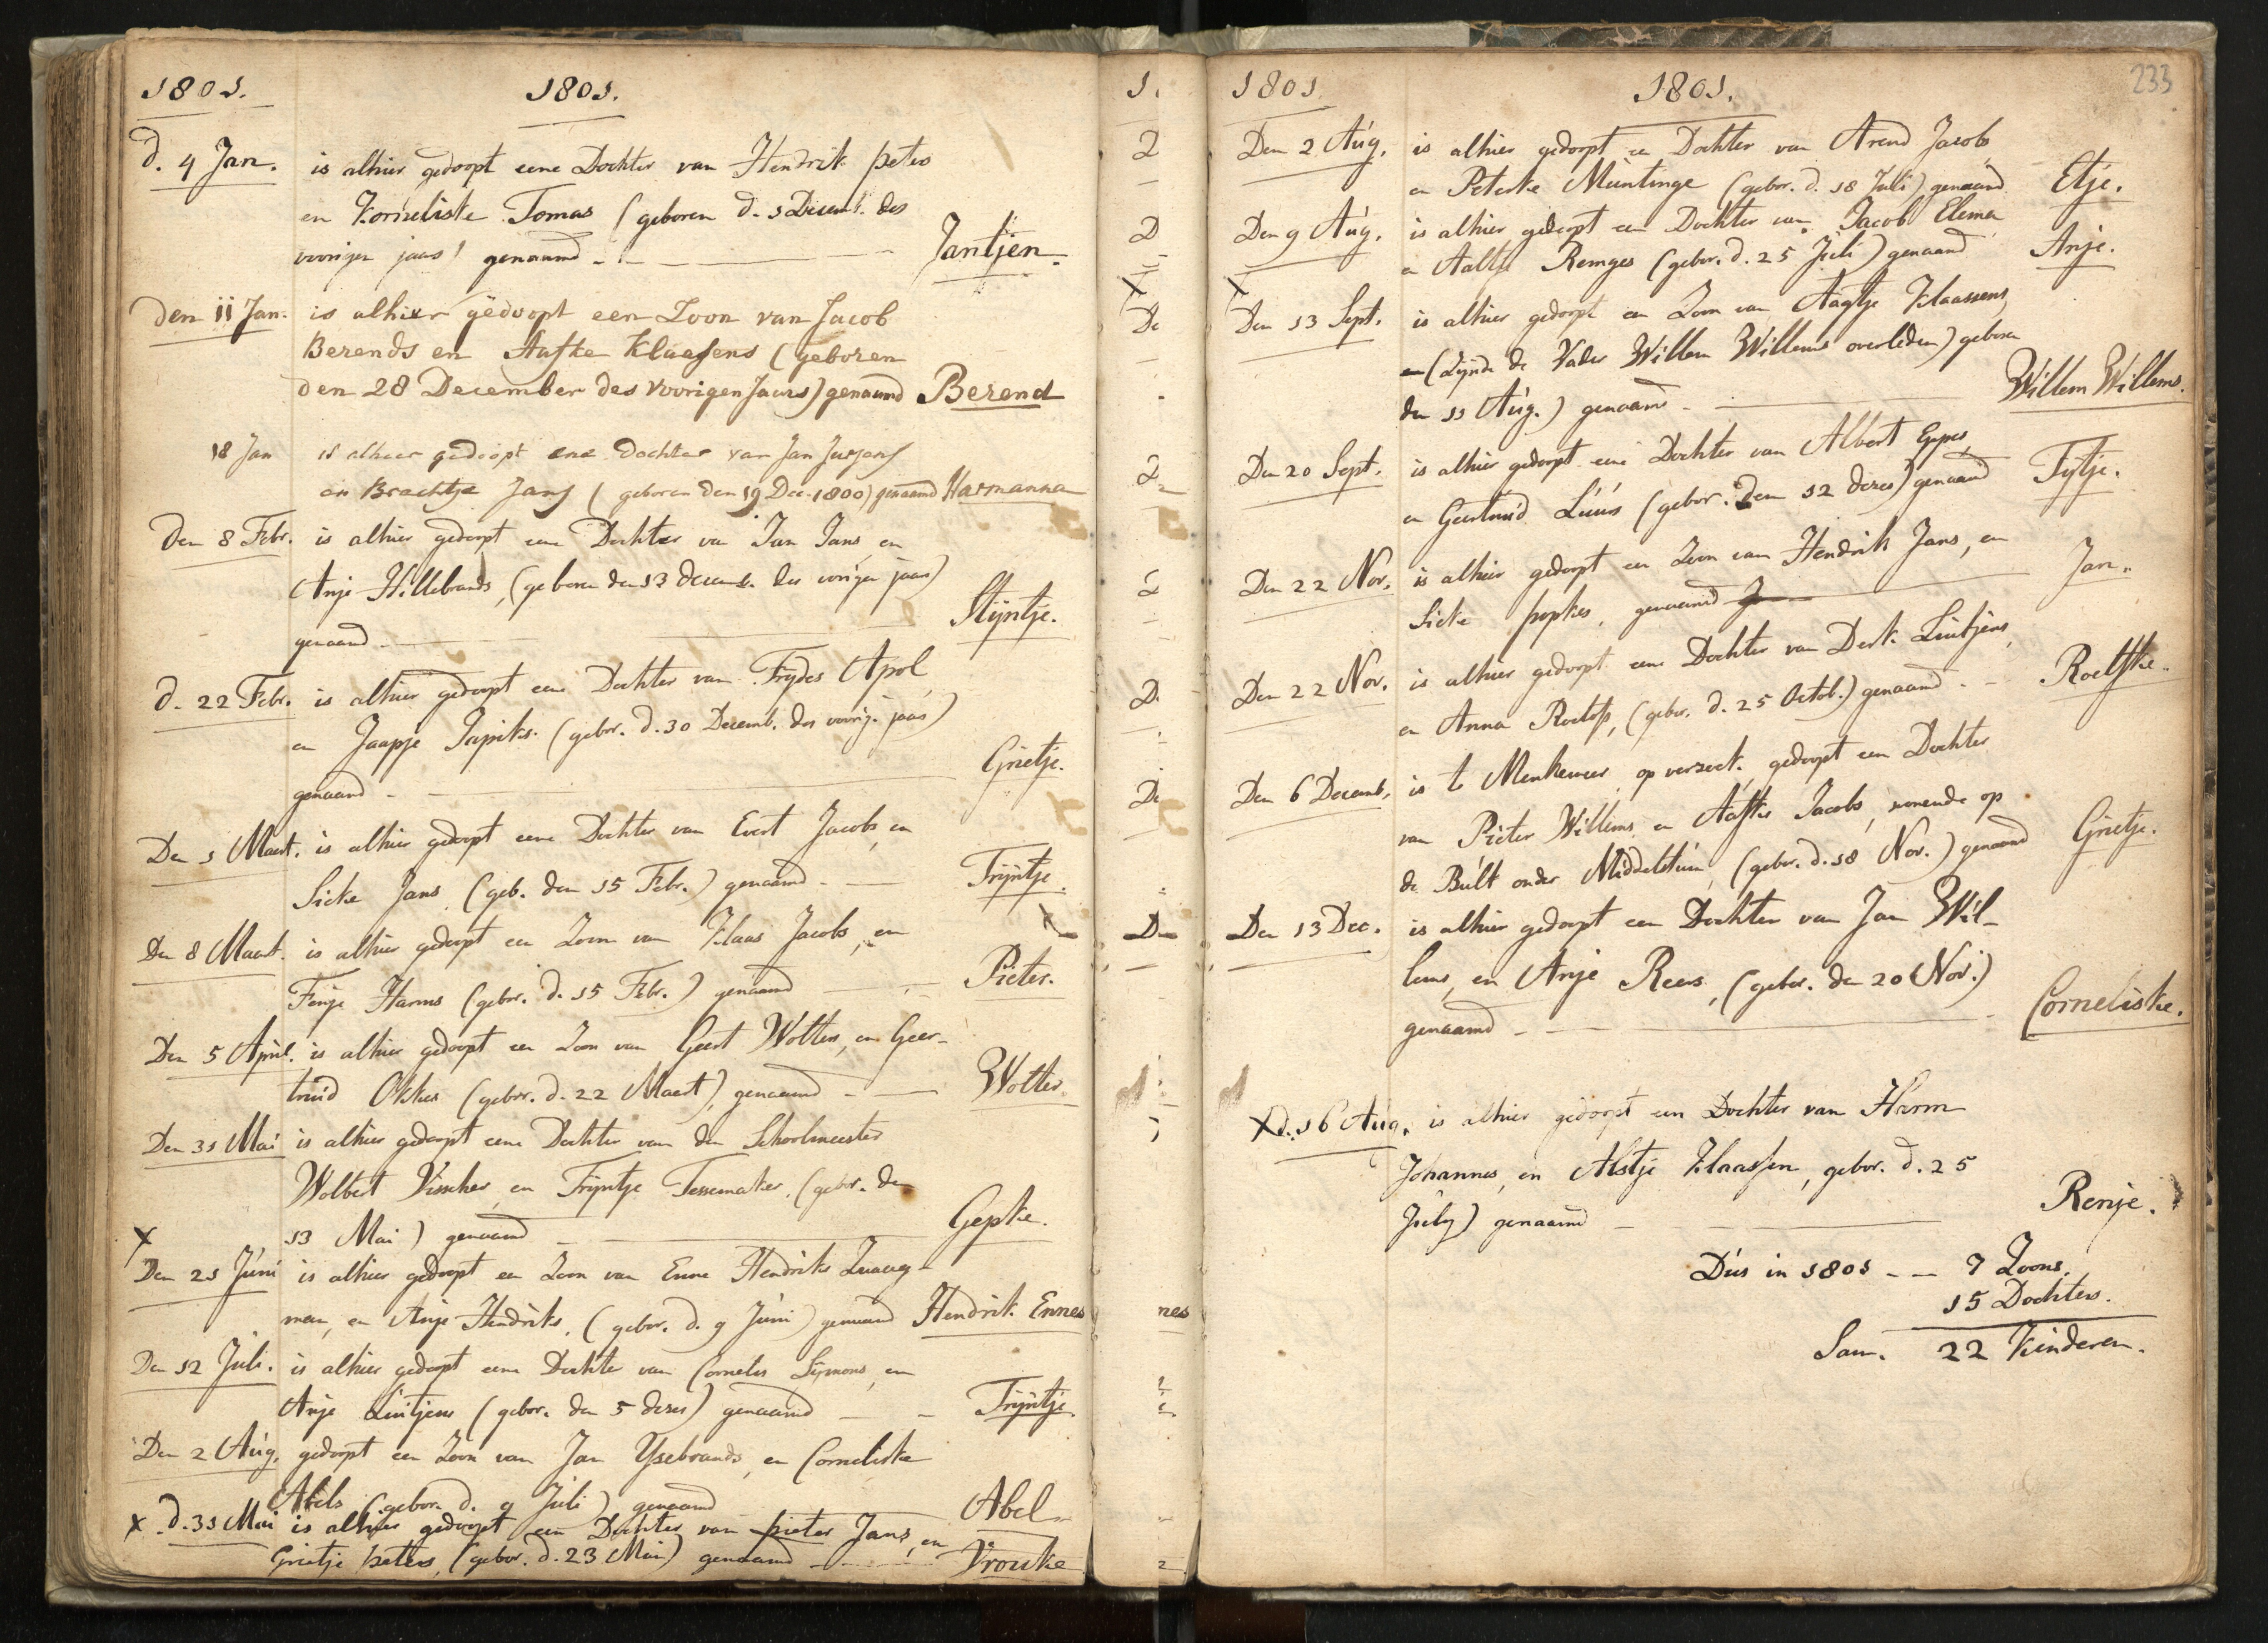 1801. 1801.
d. 4 Jan. is alhier gedoopt eene Dochter van Hendrik peters
en Korneliske Tomas (geboren d. 1 Decemb. des
voorigen jaars) genaamd - Jantjen.
den 11 Jan. is alhier gedoopt een Zoon van Jacob
Berends en Aafke Klaasens (geboren
den 28 December des Voorigen Jaars) genaamd Berend
18 Jan is alhier gedoopt ene dochter van Jan Jurjens
en Brechtje Jans (geboren den 19 Dec. 1800) genaamd Harmanna
Den 8 Febr. is alhier gedoopt eene Dochter van Jan Jans en
Anje Hillebrands, (geboren den 13 decemb. des vorigen jaars)
genaamd - Stijntje.
d. 22 Febr. is alhier gedoopt eene Dochter van Frydes Apol
en Jaapje (gebor. d. 30 Decemb. des voorig. jaars)
genaamd - Grietje.
Den 1 Maart. is alhier gedoopt eene Dochter van Evert Jacobs, en
Sieke Jans, (geb. den 15 Febr.) genaamd - Trijntje.
Den 8 Maart. is alhier gedoopt een Zoon van Klaas Jacobs, en
Fenje Harms (gebor. d. 15 Febr.) genaamd - Pieter.
Den 5 April. is alhier gedoopt een Zoon van Geert Wolters, en Geer-
truid Okkes (gebor. d. 22 Maart) genaamd - Wolter.
Den 31 Mai is alhier gedoopt eene Dochter van den Schoolmeester
Wolbert Visscher en Trijntje Tessemaker, (gebor. den
13 Mai) genaamd - Gepke.
x
Den 21 Juni is alhier gedoopt een Zoon van Enne Hendriks
man, en Anje Hendriks, (gebor. d. 9 Juni) genaamd Hendrik Ennes
Den 12 Juli. is alhier gedoopt eene Dochter van Cornelis Sijmons, en
Anje Luitjens (gebor. den 5 dezes) genaamd - Trijntje.
Den 2 Aug. gedoopt een Zoon van Jan Ysebrands en Corneliske
Abels (gebor. d. 9 Juli) genaamd Abel
x d. 31 Mai is alhier gedoopt een Dochter van pieter Jans, en
Grietje peters, (gebor. d. 23 Mai) genaamd - Vrouke
1801 1801. 233
Den 2 Aug. is alhier gedoopt een Dochter van Arend Jacobs
en Peterke Muntinge (gebor. d. 18 Juli) genaamd Etje.
Den 9 Aug. is alhier gedoopt een Dochter van Jacob Elema
en Aaltje Remges (gebor. d. 25 Juli) genaamd Anje.
x
Den 13 Sept. is alhier gedoopt een Zoon van Aagtje Klaassens,
(Zijnde de Vader Willem Willems overleden) geboren
den 11 Aug.) genaamd - Willem Willems.
Den 20 Sept. is alhier gedoopt eene Dochter van Albert Eppes,
en Geertruid Luus (gebor. den 12 dezes) genaamd Tytje.
Den 22 Nov. is alhier gedoopt een Zoon van Hendrik Jans, en
Sieke popkes, genaamd Jan.
Den 22 Nov. is alhier gedoopt eene Dochter van Derk Luitjens,
en Anna Roelofs, (gebor. d. 25 Octob.) genaamd - Roelfke.
Den 6 Decemb. is te Menkeweer op verzoek gedoopt een Dochter
van Pieter Willems en Aafke Jacobs, wonende op
de Bult onder Middelstum, (gebor. d. 18 Nov.) genaamd Grietje.
Den 13 Dec. is alhier gedoopt een Dochter van Jan Wil-
lems, en Anje Reers, (gebor. den 20 Nov.)
genaamd - Corneliske.
x d. 16 Aug. is alhier gedoopt een Dochter van Harm
Johannes, en Alstje Klaassen, gebor. d. 25
July) genaamd - Renje.
Dus in 1801 - - 7 Zoons.
15 Dochters.
Sam. 22 Kinderen.